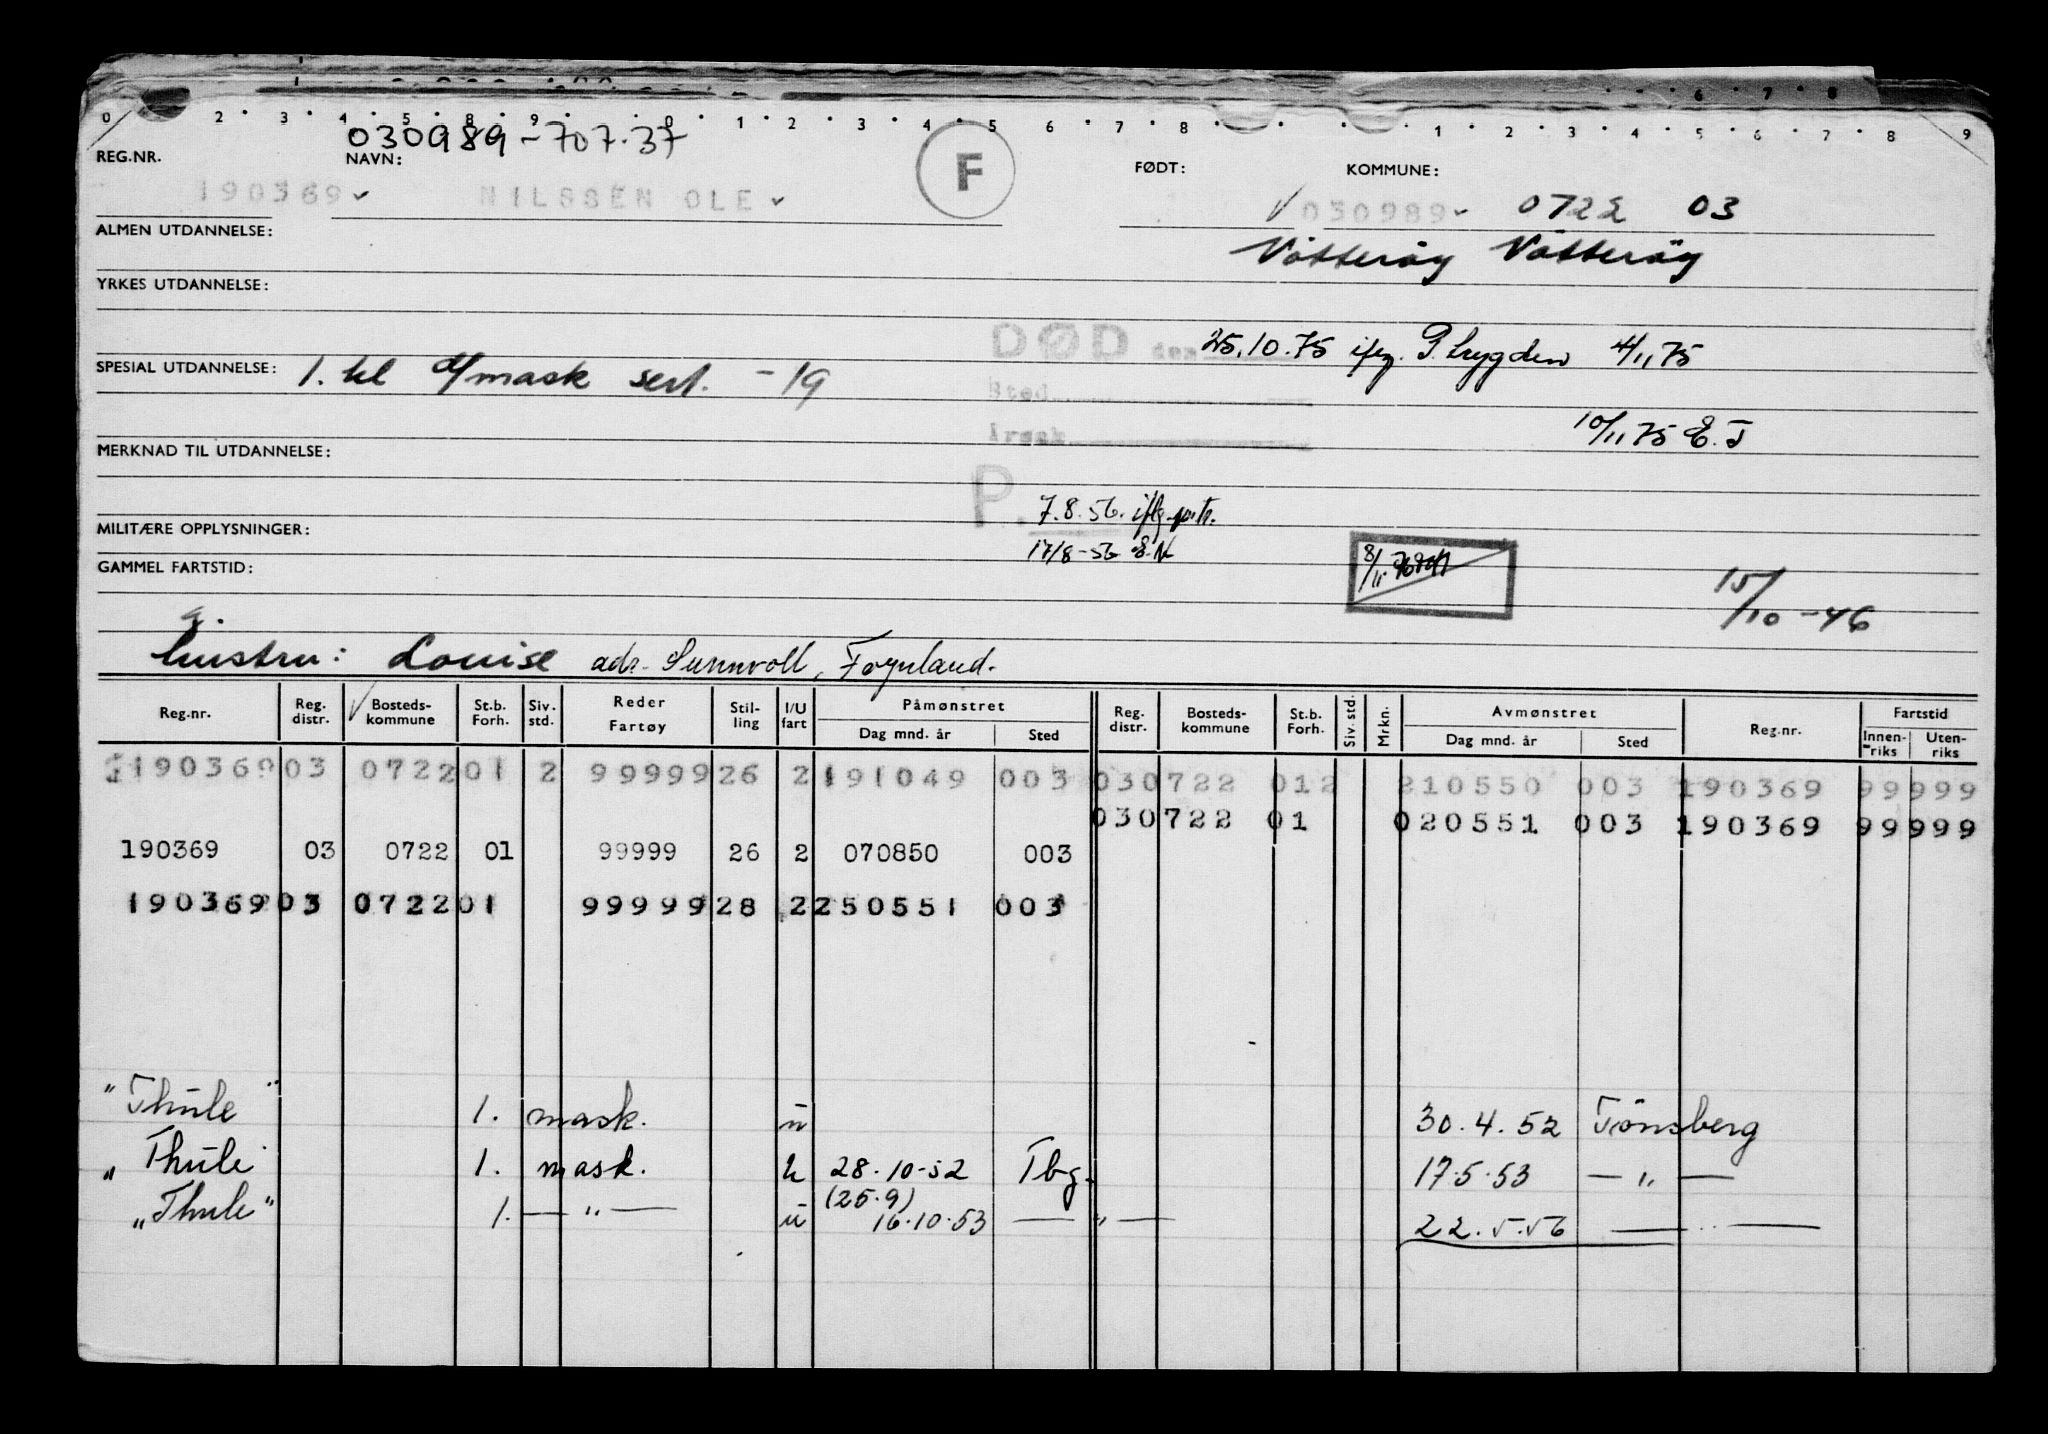 0 2 3 4 5 8 9 0 1 2 3 4 5 6 7 8 1 2 3 4 5 6 7 8 9
030989-707.37
REG.NR. NAVN: F FØDT: KOMMUNE:
190369 NILSSEN OLE 030989 0722 03
ALMEN UTDANNELSE:
YRKES UTDANNELSE:
DØD den 25.10.75 ifg. P. trygden 4/11 75
SPESIAL UTDANNELSE: 1. kl d/mask sert. -19
Sted
Årsak 10/11 75 E.T
MERKNAD TIL UTDANNELSE:
P. 7.8.56. iflg. p.tr.
MILITÆRE OPPLYSNINGER: 17/8-56 E.N
GAMMEL FARTSTID: 8/11
15/10 -46
g.
hustru: Louise adr. Sunnvoll,Føynland.
Reg.nr. Reg. distr. Bosteds- kommune St.b. Forh. Siv. std. Reder Fartøy Stil- ling I/U fart Påmønstret Dag mnd. år Sted Reg. distr. Bosteds- kommune St.b. Forh. Siv. std. Mrkn. Avmønstret Dag mnd. år Sted Reg.nr. Fartstid Innen- riks Uten- riks
190369 03 0722 01 2 99999 26 2 191049 003 03 0722 01 2 210550 003 190369 99 999
03 0722 01 020551 003 190369 99 999
190369 03 0722 01 99999 26 2 070850 003
190369 03 0722 01 99999 28 2 250551 003
"Thule" 1. mask. u 30.4.52 Tönsberg
"Thule" 1. mask. u 28.10-52 Tbg. 17.5.53 — " —
(25.9)
"Thule" 1. — " — u 16.10.53 — " — 22.5.56 — " —